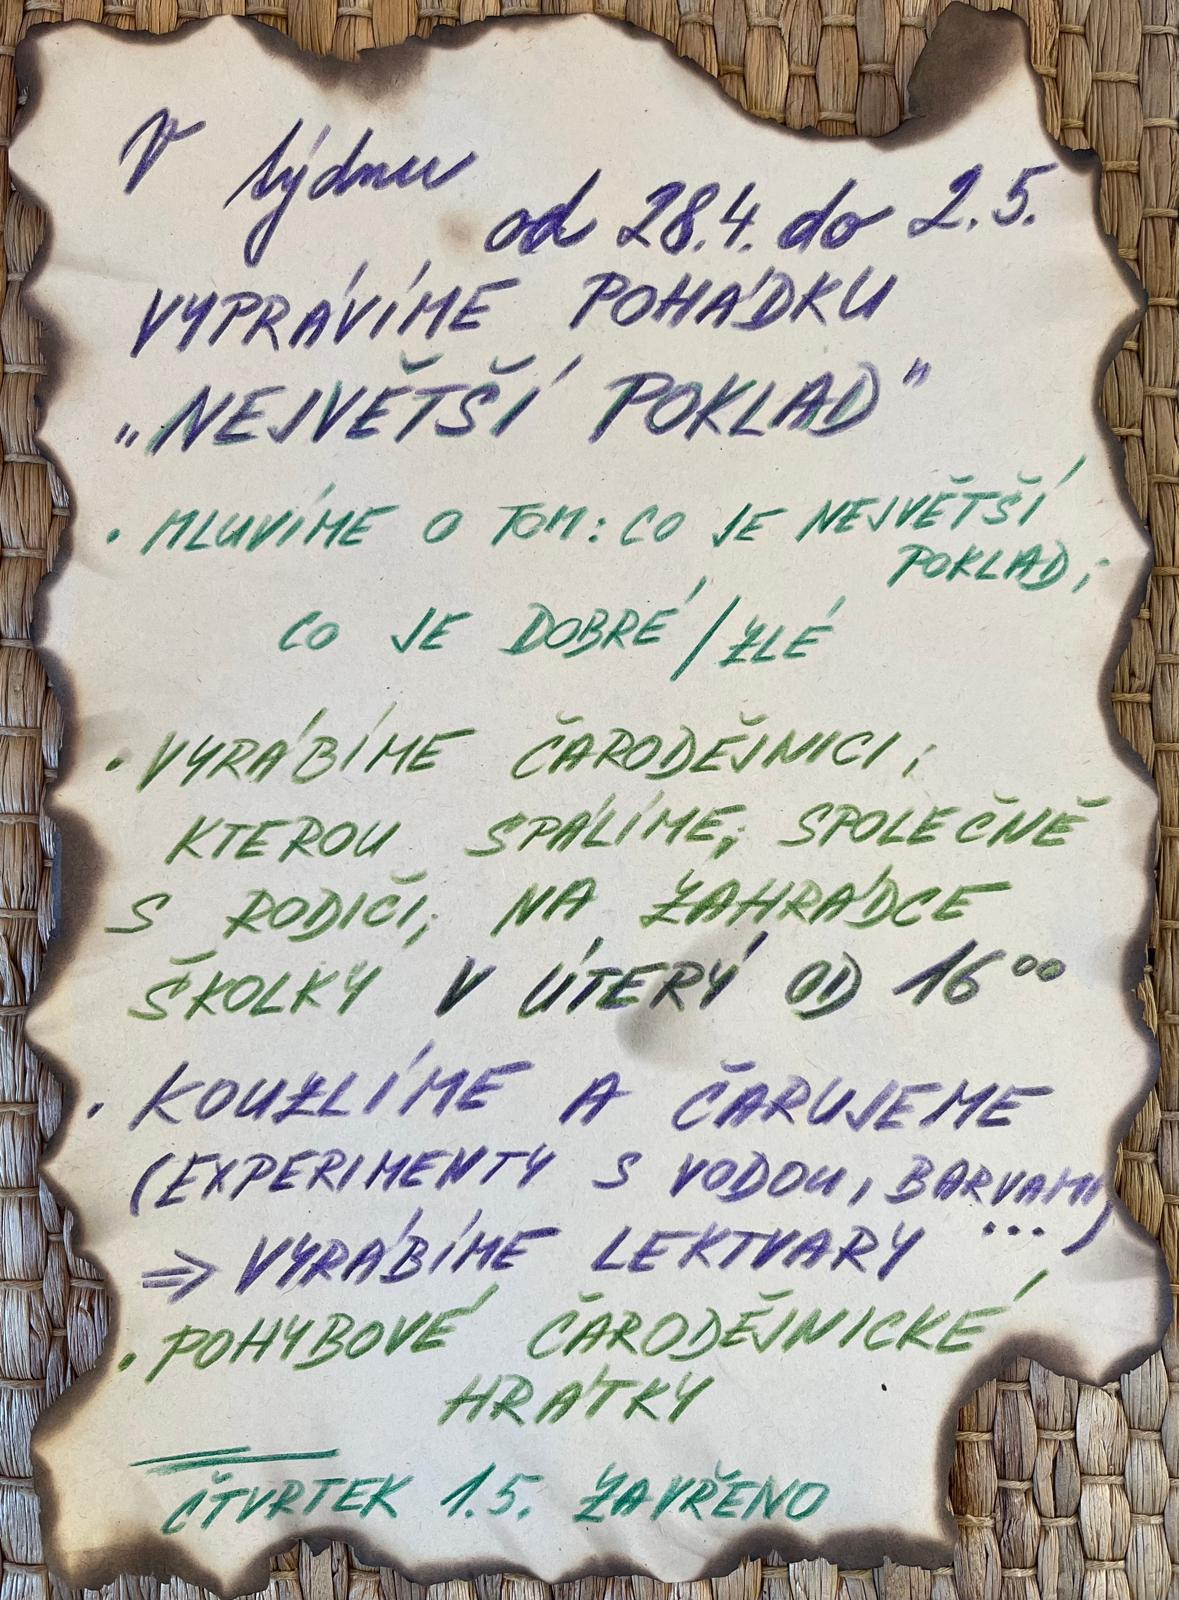 V týdnu
od 28.4. do 2.5.
VYPRÁVÍME POHÁDKU
„NEJVĚTŠÍ POKLAD"
• MLUVÍME O TOM: CO JE NEJVĚTŠÍ
POKLAD,
CO JE DOBRÉ / ZLÉ
• VYRÁBÍME ČARODĚJNICI,
KTEROU SPÁLÍME, SPOLEČNĚ
S RODIČI, NA ZAHRÁDCE
ŠKOLKY V ÚTERÝ OD 16⁰⁰
• KOUZLÍME A ČARUJEME
(EXPERIMENTY S VODOU, BARVAMI
...)
⇒ VYRÁBÍME LEKTVARY
• POHYBOVÉ ČARODĚJNICKÉ
HRÁTKY
ČTVRTEK 1.5. ZAVŘENO